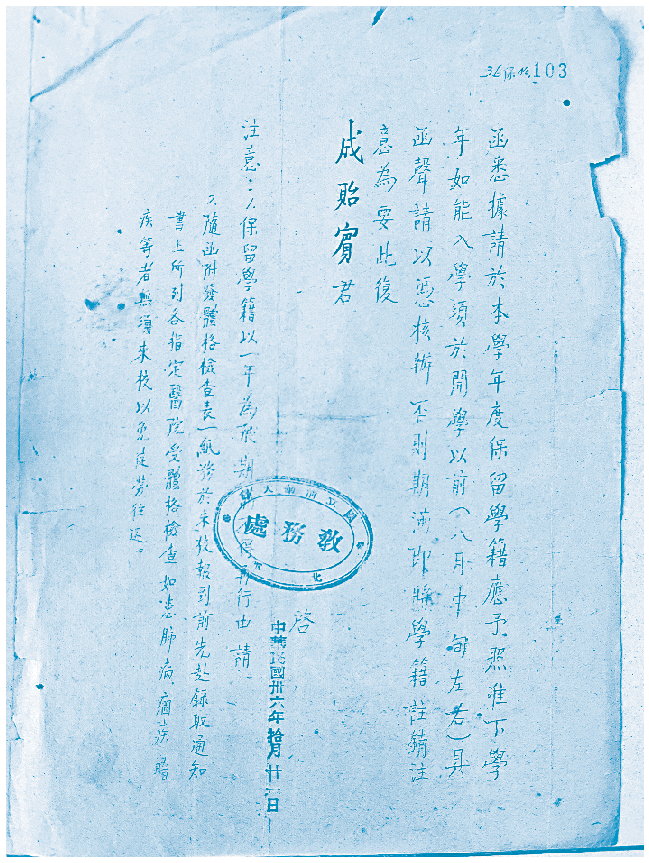 36保於103
函悉據請於本學年度保留學籍應予照准下學
年如能入學須於開學以前(八月中旬左右)具
函聲請以憑核辦否則期滿即將學籍註銷注
意為要此復
成貽賓君
啓
教務處
中華民國卅六年拾月廿日
注意:1.保留學籍以一年為限期 行也請
2.隨函附發體格檢查表一紙務於來校報到前先赴錄取通知
書上所列各指定醫院受體格檢查如患肺病、痼疾、暗
疾等者無須來校以免徒勞往返。